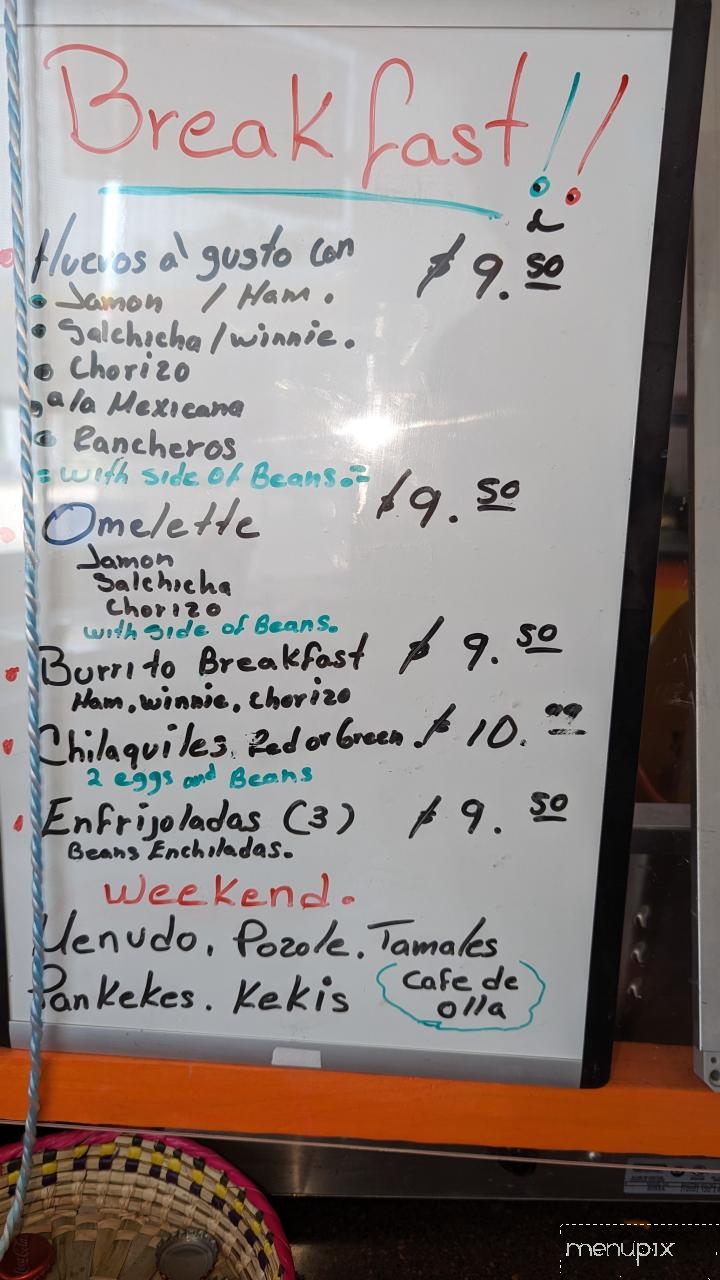 Breakfast!!
Huevos al gusto con $9.50
Jamon / Ham.
Salchicha/winnie.
Chorizo
a la Mexicana
Rancheros
with side of Beans.
Omelette $9.50
Jamon
Salchicha
Chorizo
with side of Beans.
Burrito Breakfast $9.50
Ham, winnie, chorizo
Chilaquiles Red or Green. $10.99
2 eggs and Beans
Enfrijoladas (3) $9.50
Beans Enchiladas.
Weekend.
Menudo, Pozole, Tamales
Pankekes. Kekis
Cafe de
olla
menupix